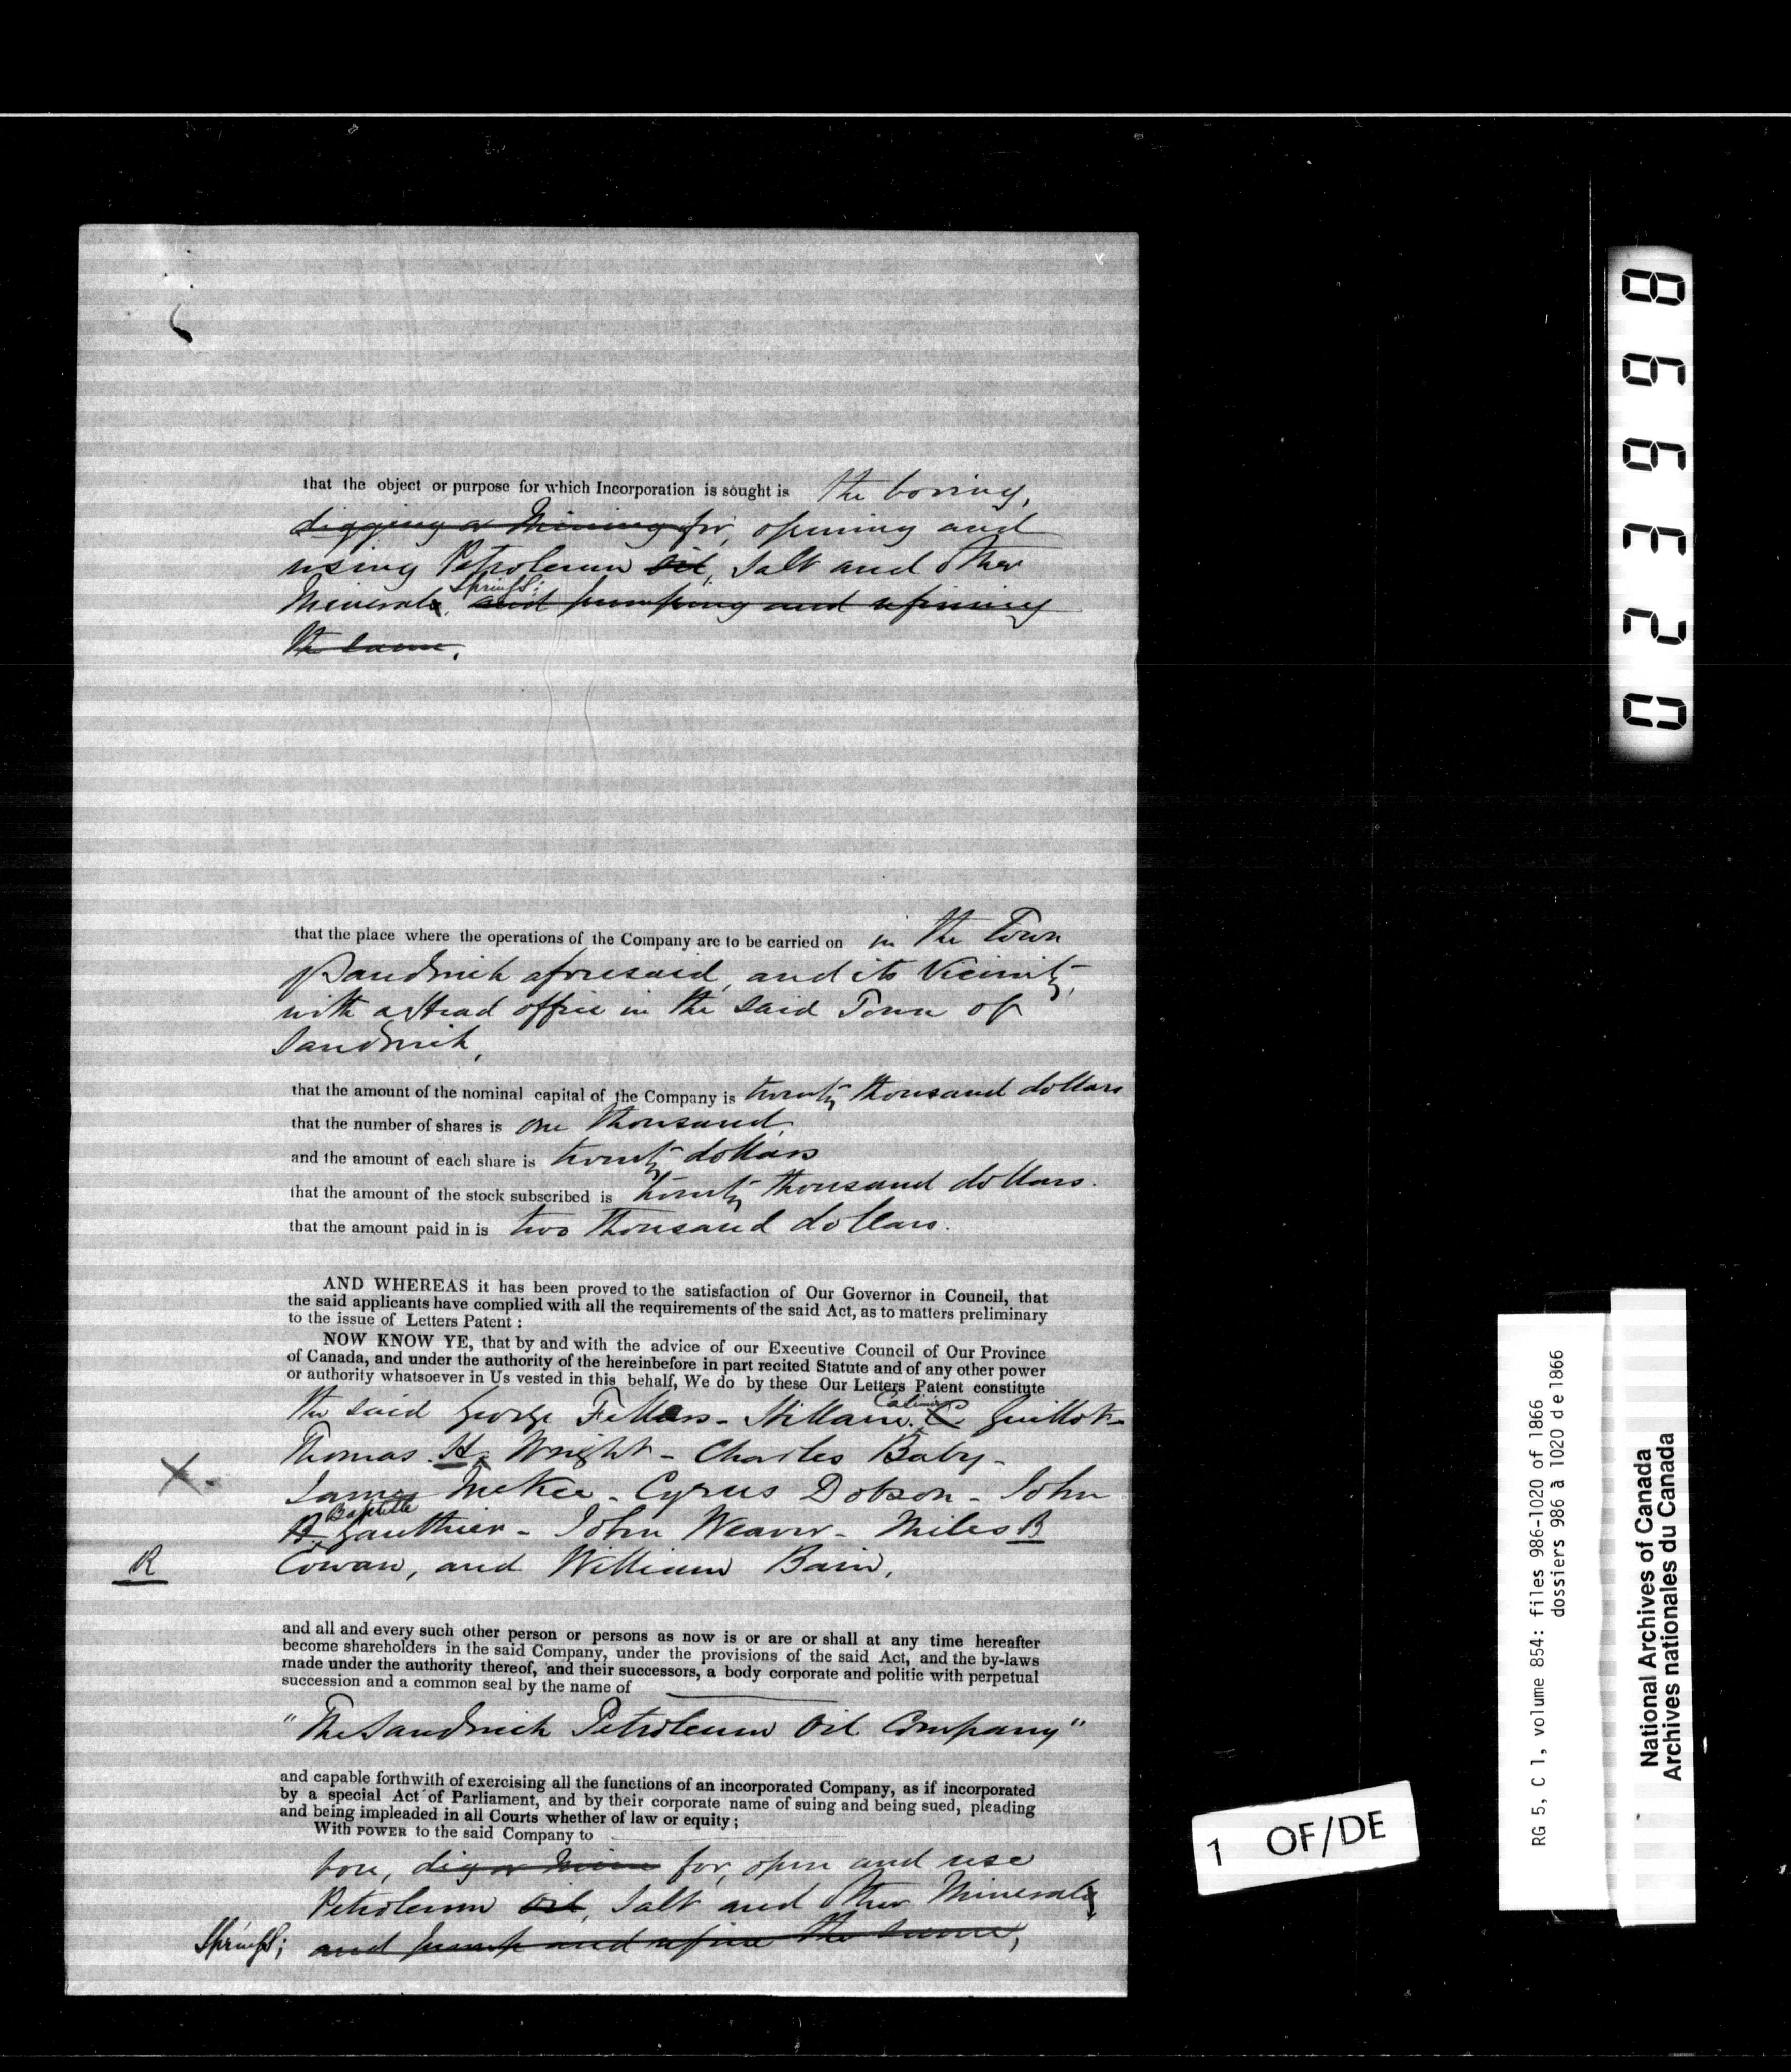 that the object or purpose for which Incorporation is sought is the boring,
digging or Mining for, opening and
using Petroleum oil, Salt and other
Springs;
Minerals, and pumping and refining
the same.
that the place where the operations of the Company are to be carried on in the Town
Sandwich aforesaid, and its Vicinity,
with a Head office in the said Town of
Sandwich,
that the amount of the nominal capital of the Company is twenty thousand dollars
that the number of shares is one thousand,
and the amount of each share is twenty dollars
that the amount of the stock subscribed is twenty thousand dollars.
that the amount paid in is two thousand dollars.
AND WHEREAS it has been proved to the satisfaction of Our Governor in Council, that
the said applicants have complied with all the requirements of the said Act, as to matters preliminary
to the issue of Letters Patent :
NOW KNOW YE, that by and with the advice of our Executive Council of Our Province
of Canada, and under the authority of the hereinbefore in part recited Statute and of any other power
or authority whatsoever in Us vested in this behalf, We do by these Our Letters Patent constitute
Casimir
the said George Fellers - Hillaire C Guillot -
Thomas H. Wright - Charles Baby -
X.
James McKee - Cyrus Dobson - John
Baptiste
B. Gauthier - John Weaver - Miles B
R
Cowan, and William Bain,
and all and every such other person or persons as now is or are or shall at any time hereafter
become shareholders in the said Company, under the provisions of the said Act, and the by-laws
made under the authority thereof, and their successors, a body corporate and politic with perpetual
succession and a common seal by the name of
"The Sandwich Petroleum Oil Company"
and capable forthwith of exercising all the functions of an incorporated Company, as if incorporated
by a special Act of Parliament, and by their corporate name of suing and being sued, pleading
and being impleaded in all Courts whether of law or equity ;
With POWER to the said Company to
bore, dig or Mine for, open and use
Petroleum oil, Salt and other Minerals,
Springs; and pump and refine the same,
1 OF/DE
RG 5, C 1, volume 854: files 986-1020 of 1866
dossiers 986 à 1020 de 1866
National Archives of Canada
Archives nationales du Canada
023998